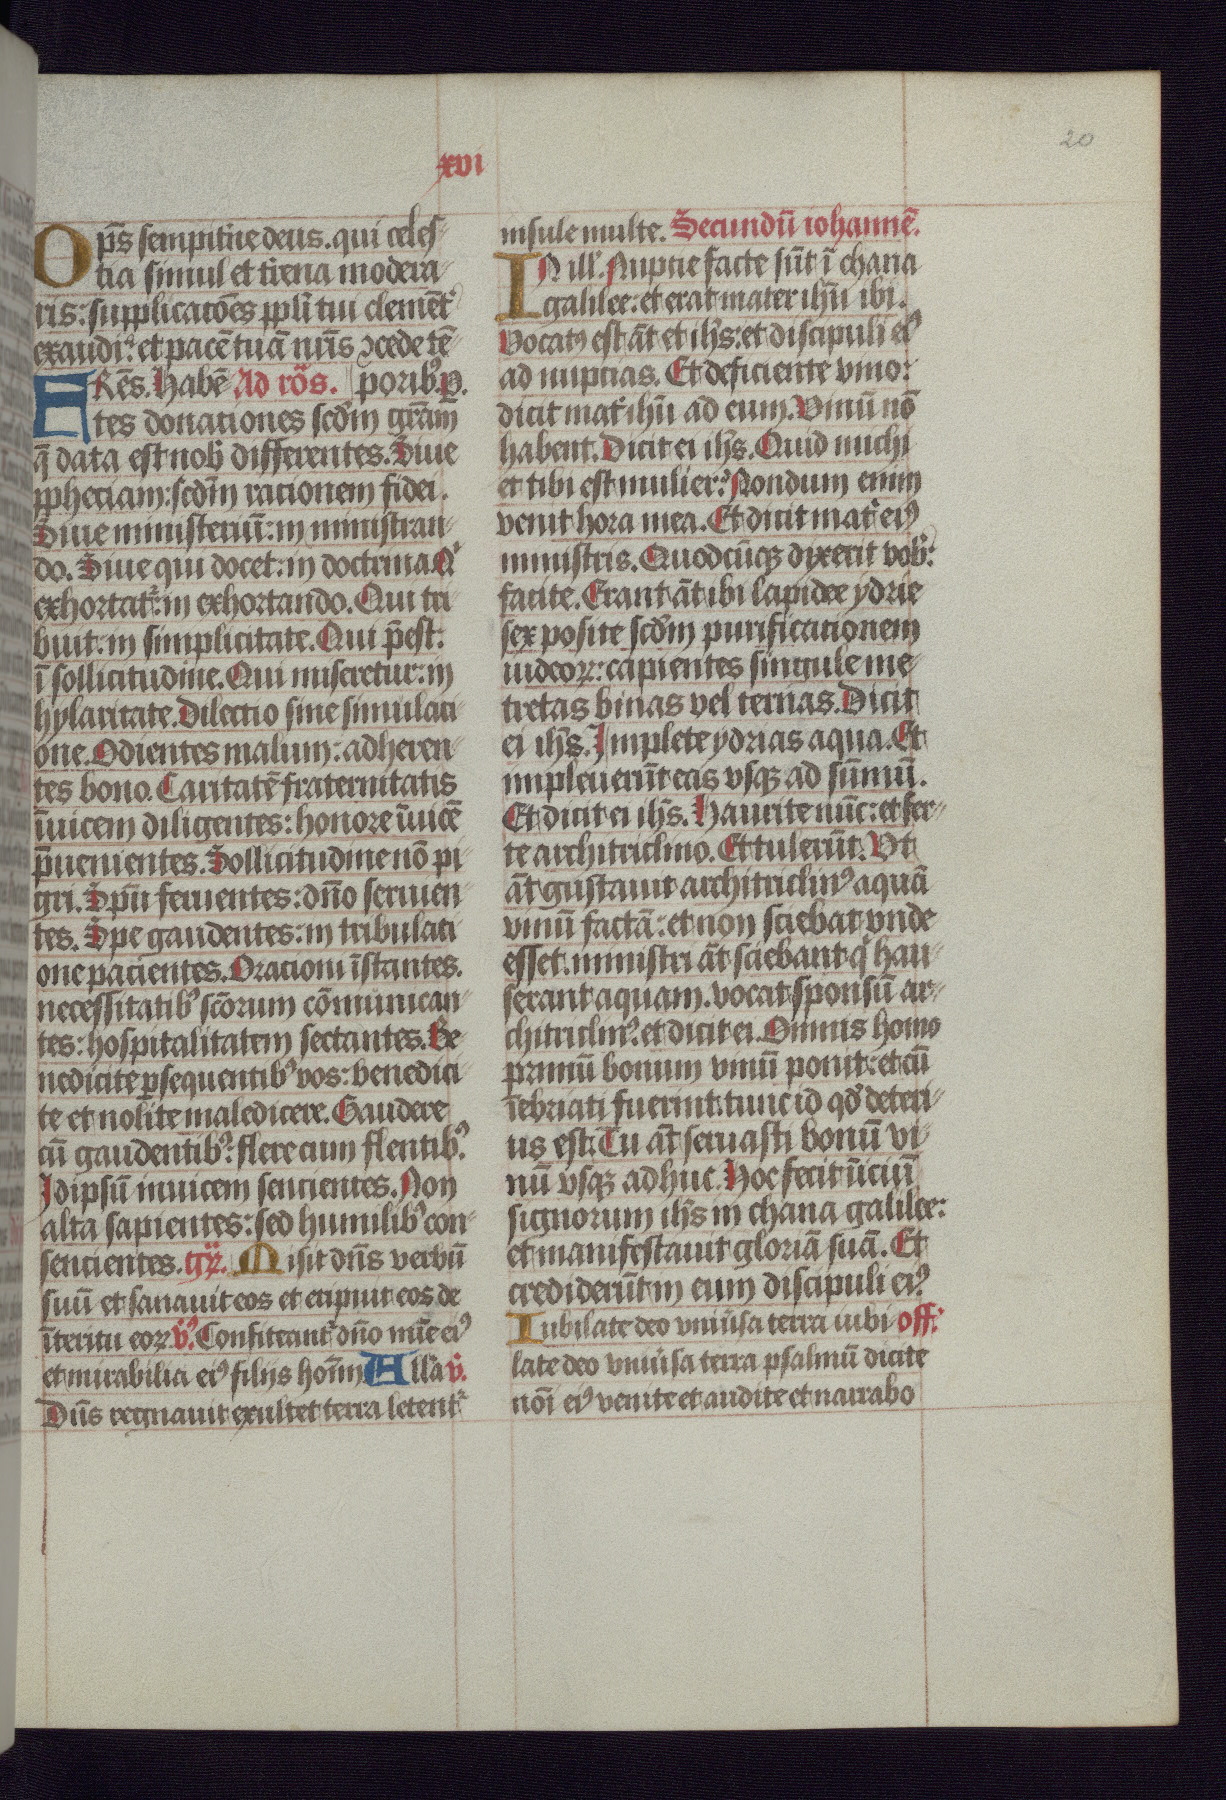 20
xvi
Op̄s sempit̄ne deus. qui celes-
tia simul et t̄rena modera-
ris: supplicatōes ppl̄i tui clemēt᷑
exaudi: et pacē tuā nr̄is ꝯcede tē-
FRēs. Habē Ad rōs. poribꝰ. P.
tes donationes scd̄m gr̄am
q̄ data est nob̄ differentes. Siue
ꝓpheciam: scd̄m racionem fidei.
Siue ministeriū: in ministran-
do. Siue qui docet: in doctrina. Qͥ
exhortat᷑: in exhortando. Qui tri-
buit: in simplicitate. Qui p̄est:
ī sollicitudine. Qui miseretur: in
hylaritate. Dilectio sine simulati-
one. Odientes malum: adheren-
tes bono. Caritatē fraternitatis
īuicem diligentes: honore īuicē
p̄uenientes. Sollicitudine nō pi-
gri. Spū feruentes: dn̄o seruien-
tes. Spe gaudentes: in tribulati-
one pacientes. Oracioni īstantes.
necessitatibꝰ scōrum cōmunican-
tes: hospitalitatem sectantes. Be-
nedicite ꝑsequentibꝰ vos: benedici-
te et nolite maledicere. Gaudere
cū gaudentibꝰ: flere cum flentibꝰ.
Idipsū inuicem sencientes. Non
alta sapientes: sed humilibꝰ con-
sencientes. Gͬ. Misit dn̄s verbū
suū et sanauit eos et eripuit eos de
īteritu eoꝝ ℣. Confiteant᷑ dn̄o mīe eiꝰ
et mirabilia eiꝰ filijs hoīm All̄a ℣.
Dn̄s regnauit exultet terra letent᷑
insule multe. Secundū iohannē.
IN ill̄. Nuptie facte sūt ī chana
galilee: et erat mater ihū ibi.
Vocatꝰ est āt et ihs̄: et discipuli eiꝰ
ad nuptias. Et deficiente vino:
dicit mat̄ ihū ad eum. Vinū nō
habent. Dicit ei ihs̄. Quid michi
et tibi est mulier? Nondum enim
venit hora mea. Et dicit mat̄ eiꝰ
ministris. Quodcūqꝫ dixerit vob̄:
facite. Erant āt ibi lapidee ydrie
sex posite scd̄m purificationem
iudeoꝝ: capientes singule me-
tretas binas vel ternas. Dicit
ei ihs̄. Implete ydrias aqua. Et
impleuerūt eas vsqꝫ ad sūmū.
Et dicit ei ihs̄. Haurite nūc: et fer-
te architriclino. Et tulerūt. Vt
āt gustauit architriclinꝰ aquā
vinū factā: et non sciebat vnde
esset. ministri āt sciebant qͥ hau-
serant aquam. vocat sponsū ar-
chitriclinꝰ. et dicit ei. Omnis homo
primū bonum vinū ponit: et cū
īebriati fuerint: tunc id qd̄ deteri-
us est. Tu āt seruasti bonū vi-
nū vsqꝫ adhuc. Hoc fecit īiciū
signorum ihs̄ in chana galilee:
et manifestauit gloriā suā. Et
crediderūt in eum discipuli eiꝰ.
Iubilate deo vniūsa terra iubi off:
late deo vniūsa terra psalmū dicite
noī eiꝰ venite et audite et narrabo